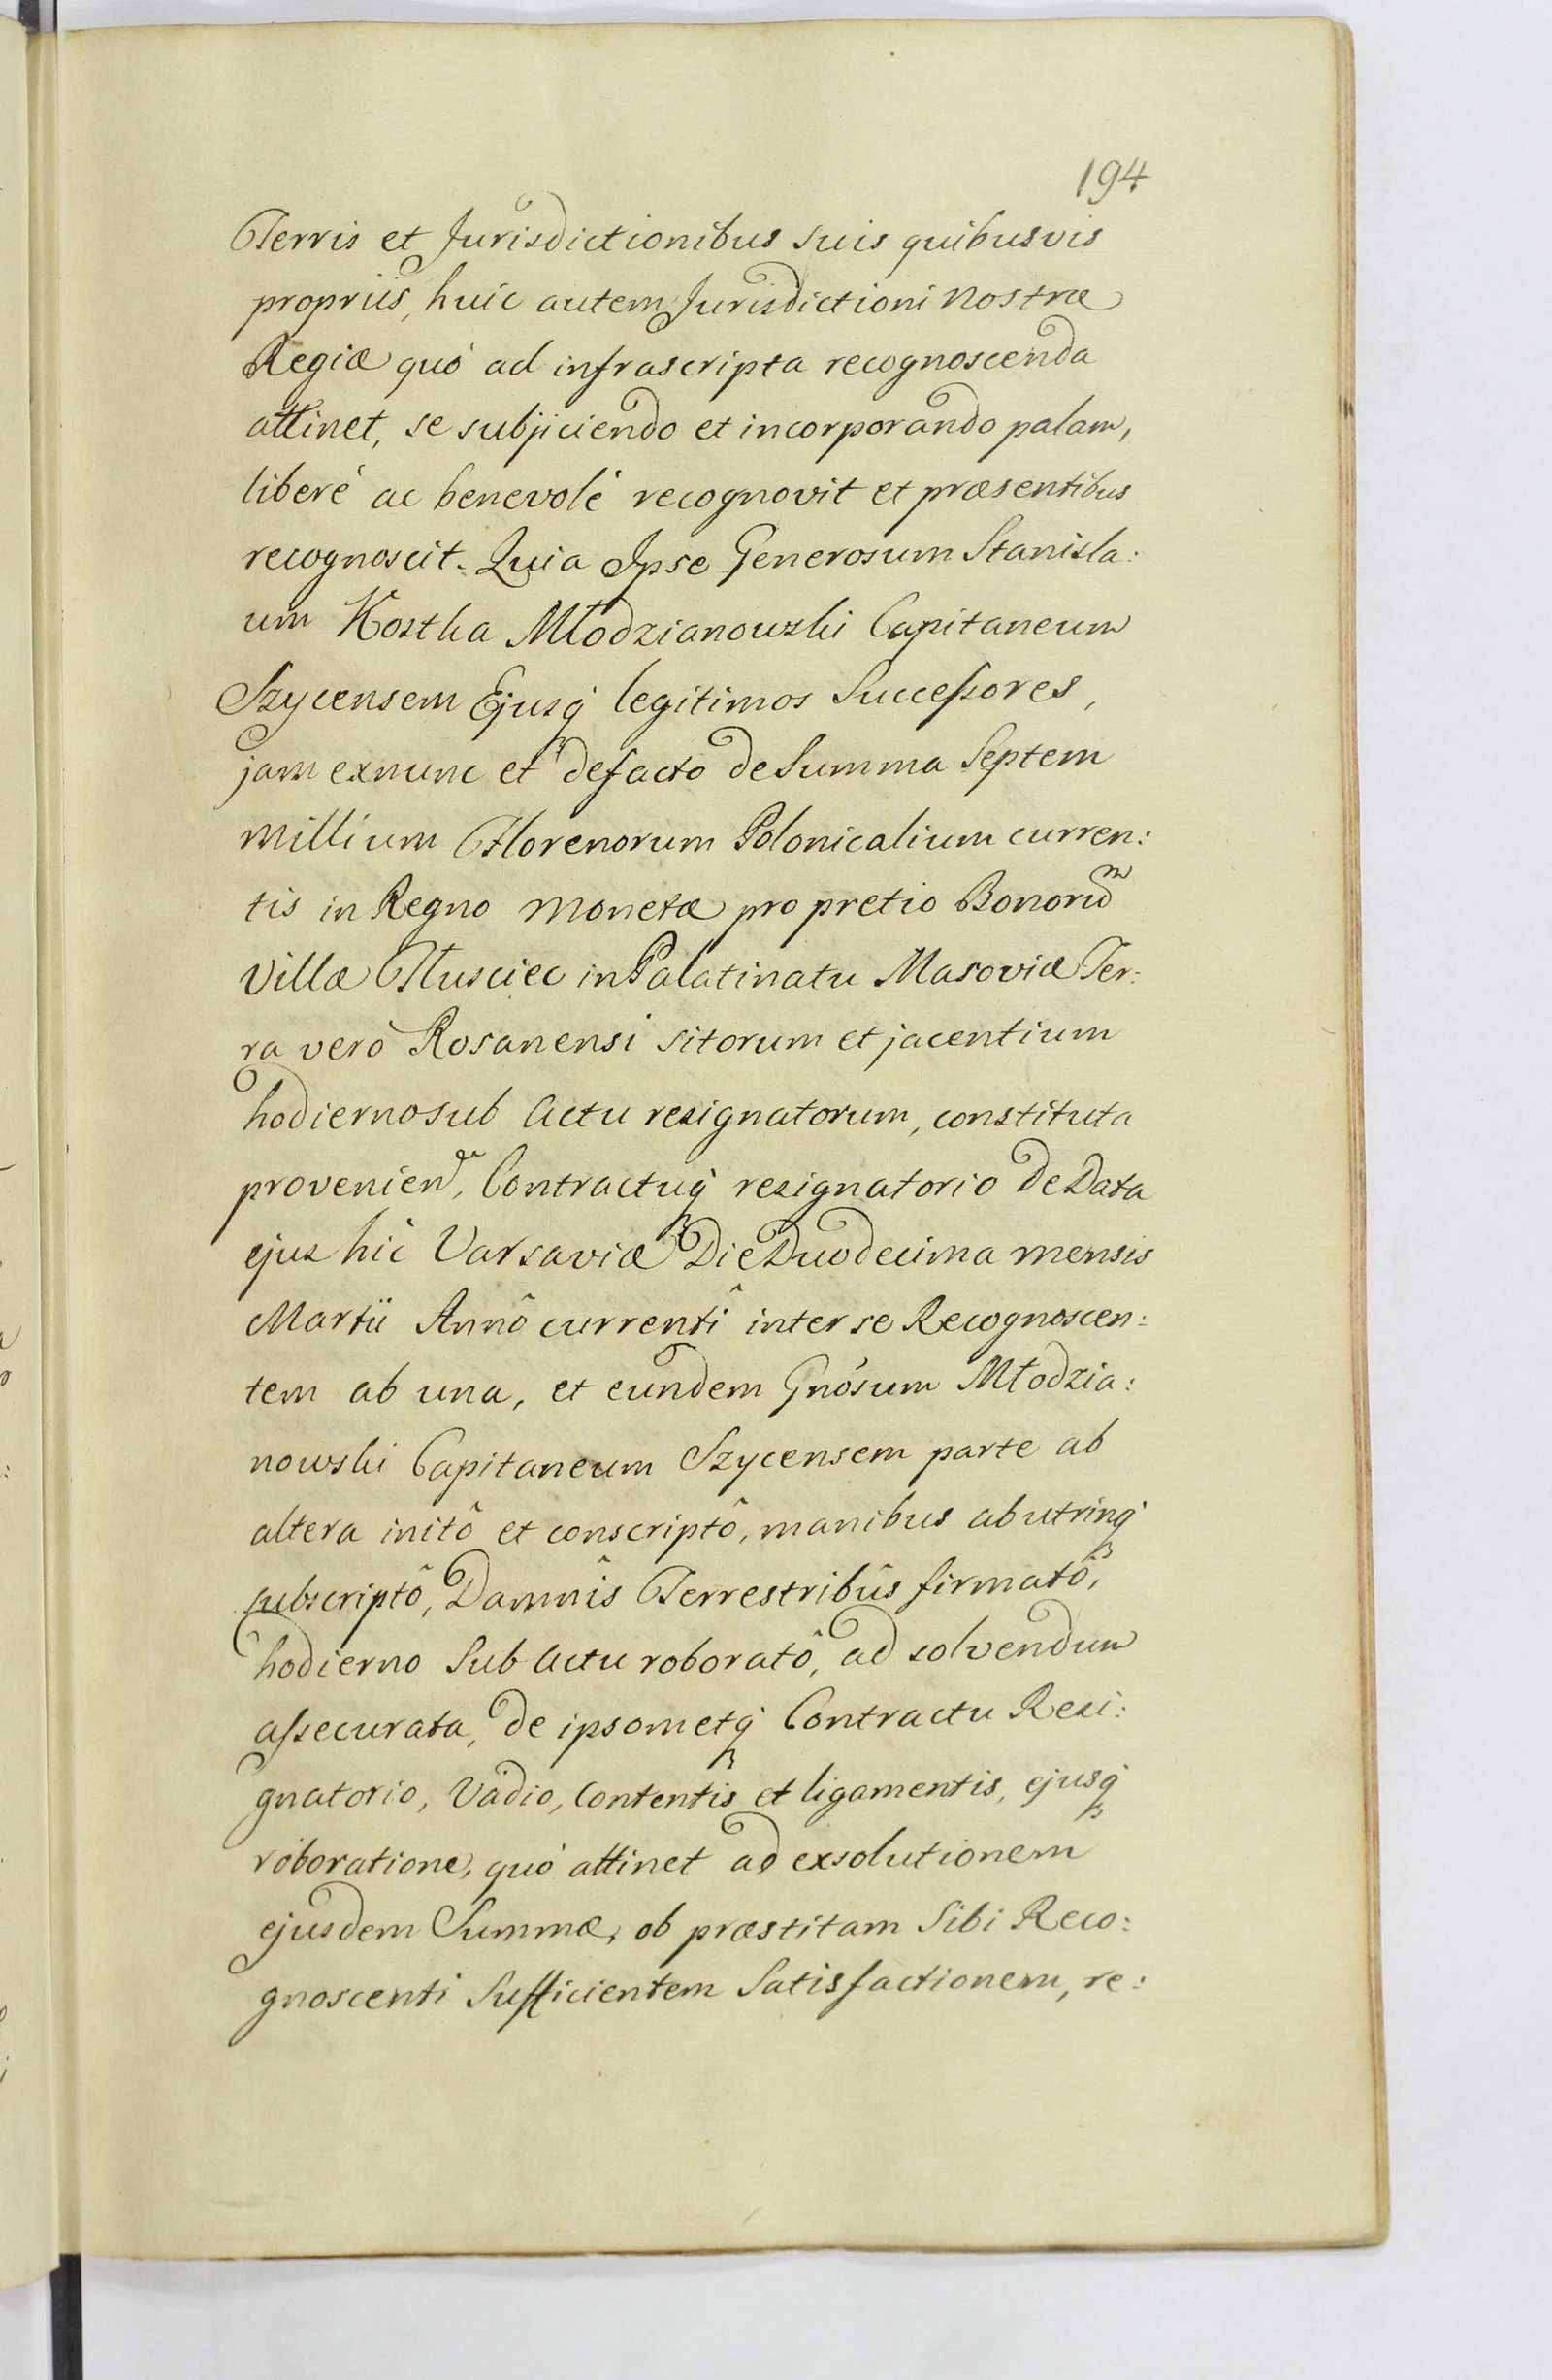 194
Terris et Jurisdictionibus suis quibusvis
propriis, huic autem Jurisdictioni nostræ
Regiæ quò ad infrascripta recognoscenda
attinet, se subjiciendo et incorporando palam,
liberè ac benevolè recognovit et præsentibus
recognoscit. Quia Ipse Generosum Stanisla:
um Kostka Młodzianowski Capitaneum
Szycensem Ejusq́ legitimos Successores,
jam exnunc et defacto de Summa Septem
Millium Florenorum Polonicalium curren:
tis in Regno monetæ pro pretio Bonorum
Villæ Tłusciec in Palatinatu Masoviæ Ter:
ra verò Rosanensi sitorum et jacentium
hodierno sub Actu resignatorum, constituta
provenien, Contractuq́ resignatorio de Data
ejus hic Varsaviæ Die Duodecima mensis
Martii Annô currentî inter se Recognoscen:
tem ab una, et eundem Gnósum Młodzia:
nowski Capitaneum Szycensem parte ab
altera initô et conscriptô, manibus ab utrinq́
subscriptô, Damnîs Terrestribûs firmatô,
hodierno Sub Actu roboratô, ad solvendum
assecurata, de ipsometq́ Contractu Resi:
gnatorio, Vadio, Contentis et ligamentis, ejusq́
roboratione, quò attinet ad exsolutionem
ejusdem Summæ, ob præstitam Sibi Reco:
gnoscenti Sufficientem Satisfactionem, re: